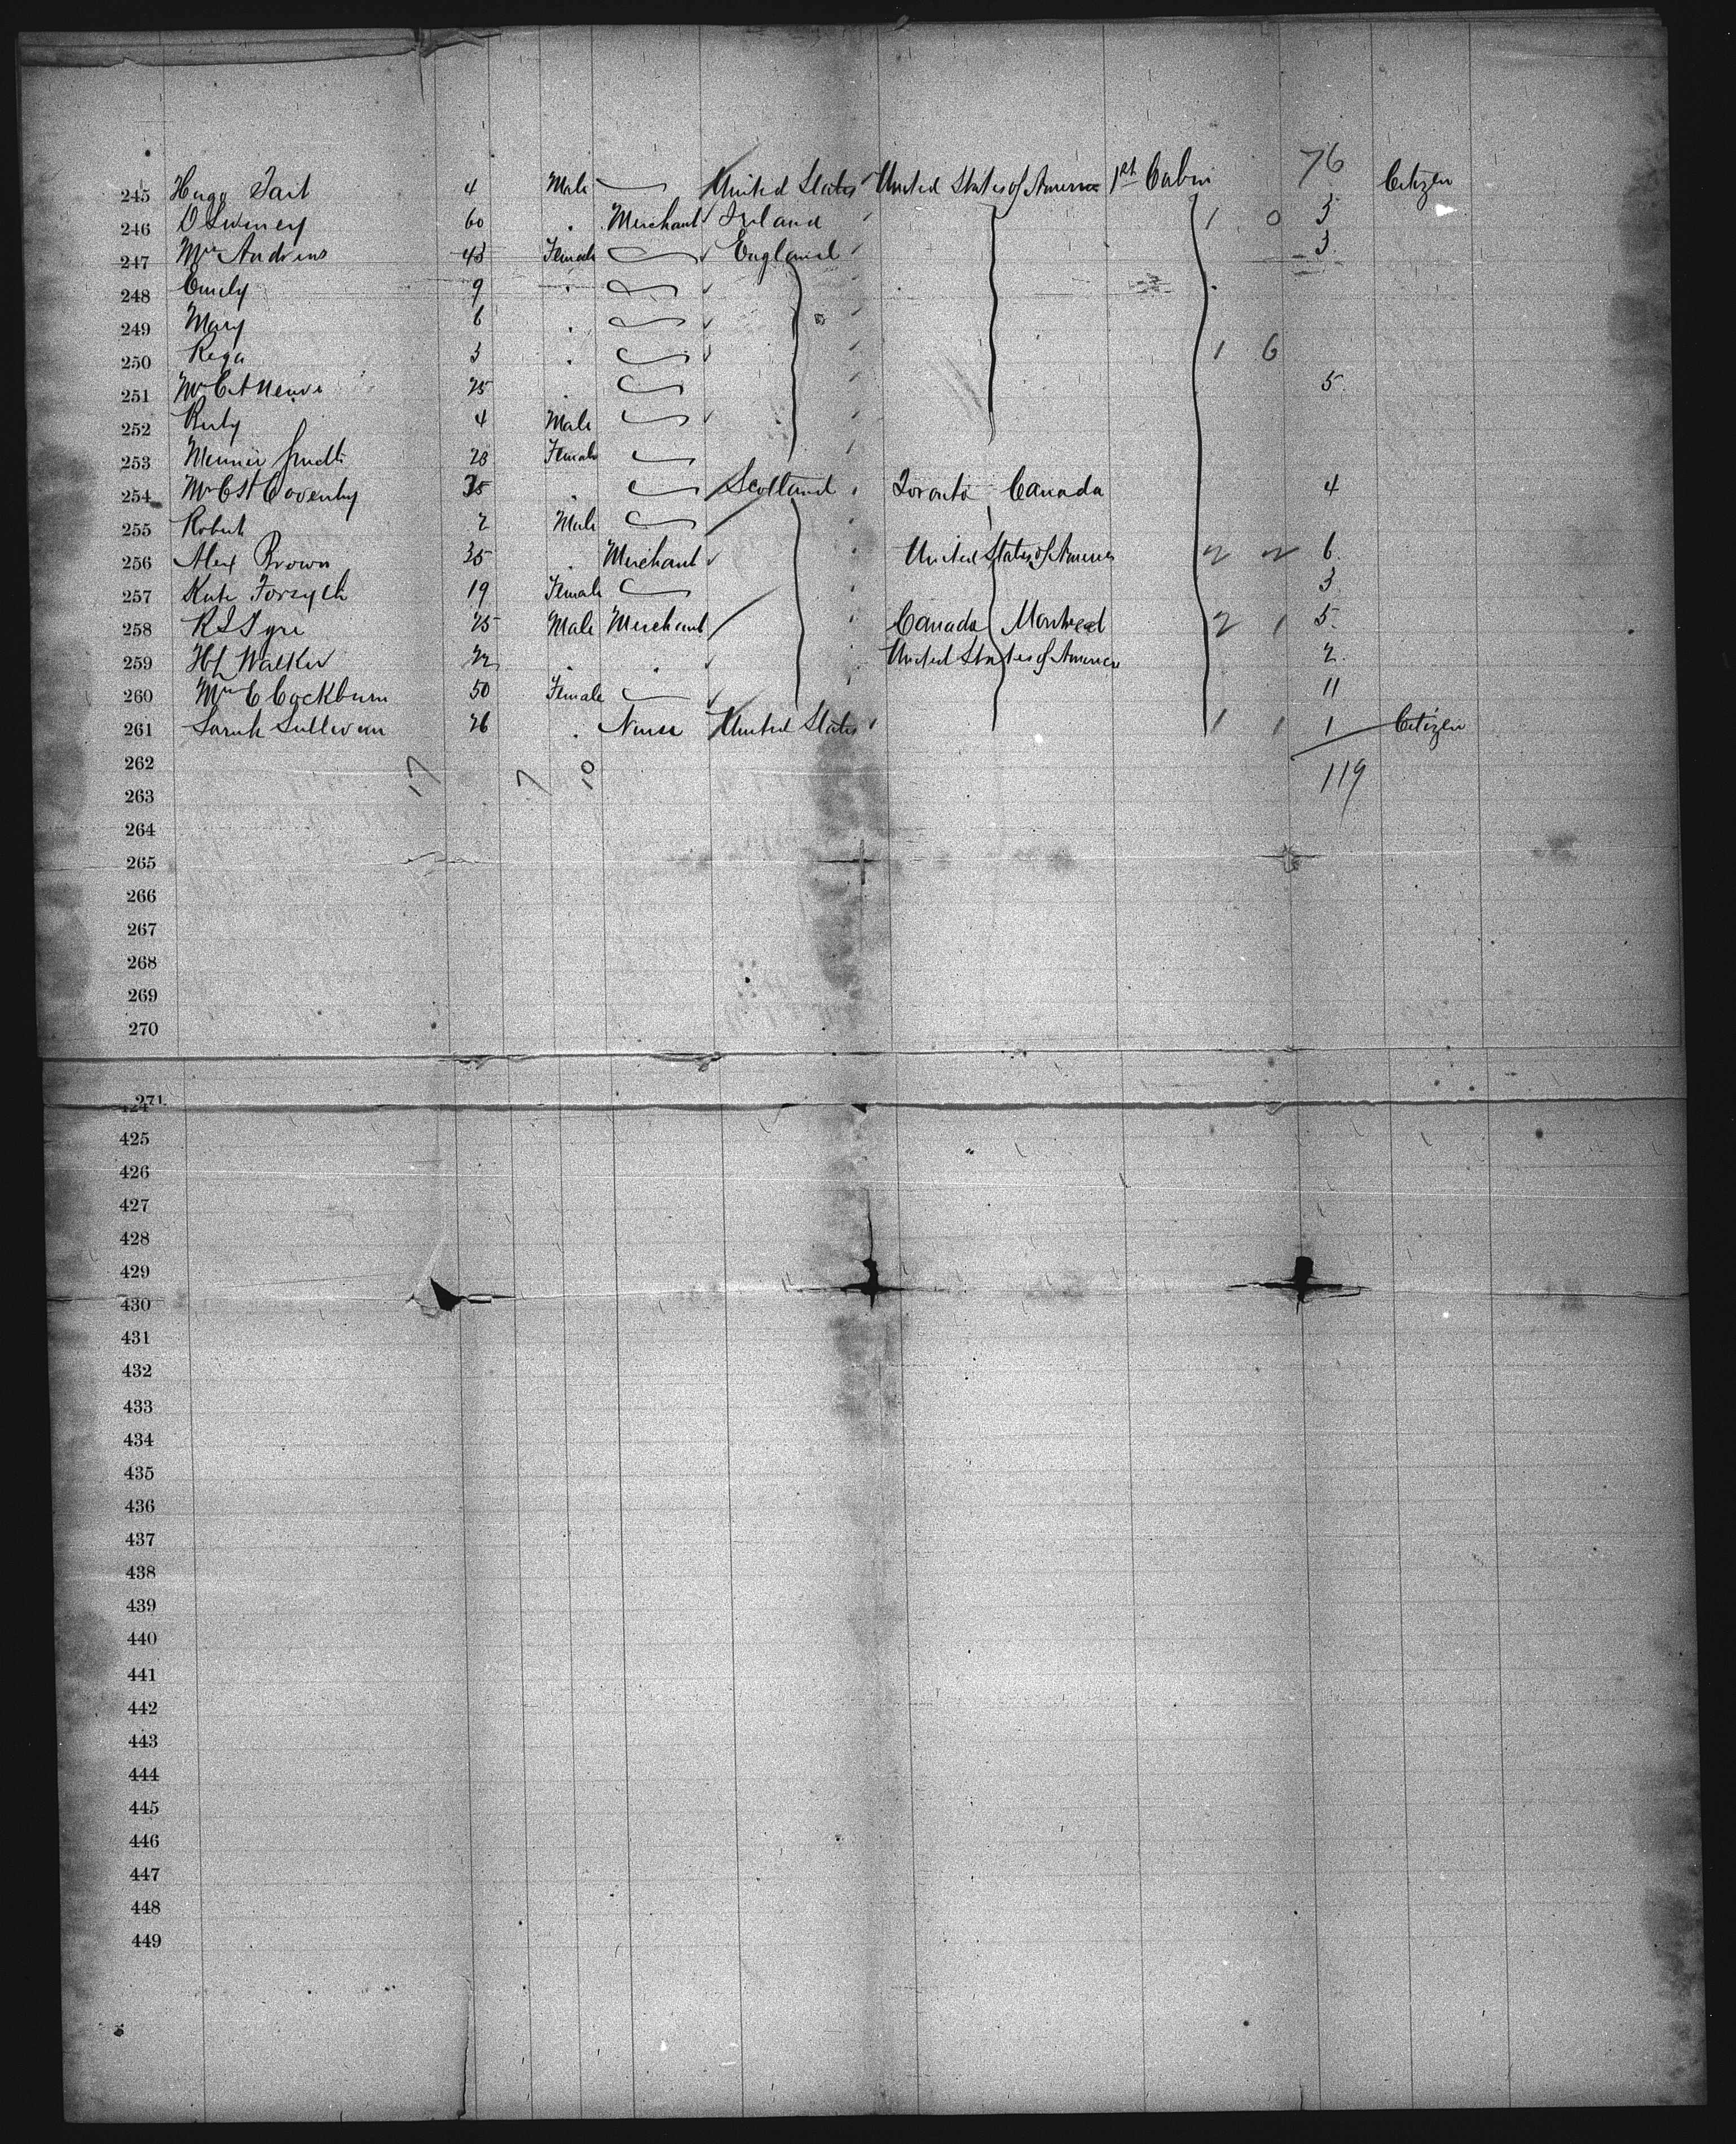 76
245 Hugo Tait 4 Male United States United States of America 1st Cabin Citizen
246 D Swiney 60 " Merchant Ireland 1 0 5
247 Mrs Andrews 43 Female England 3
248 Emily 9 "
249 Mary 6 "
250 3 " 1 6
251 25 " 5
252 4 Male
253 Minnie 28 Female
254 Mrs C H Coventry 35 " Scotland Toronto Canada 4
255 Robert 2 Male
256 Alex Brown 35 " Merchant United States of America 2 2 6
257 Kate Forsyth 19 Female 3
258 R S Tyre 25 Male Merchant Canada Montreal 2 1 5
259 Walker 22 " " United States of America 2
260 Mrs C Cockburn 50 Female 11
261 Sarah Sullivan 26 " Nurse United States 1 1 1 Citizen
262 17 7 10 119
263
264
265
266
267
268
269
270
271
424
425
426
427
428
429
430
431
432
433
434
435
436
437
438
439
440
441
442
443
444
445
446
447
448
449